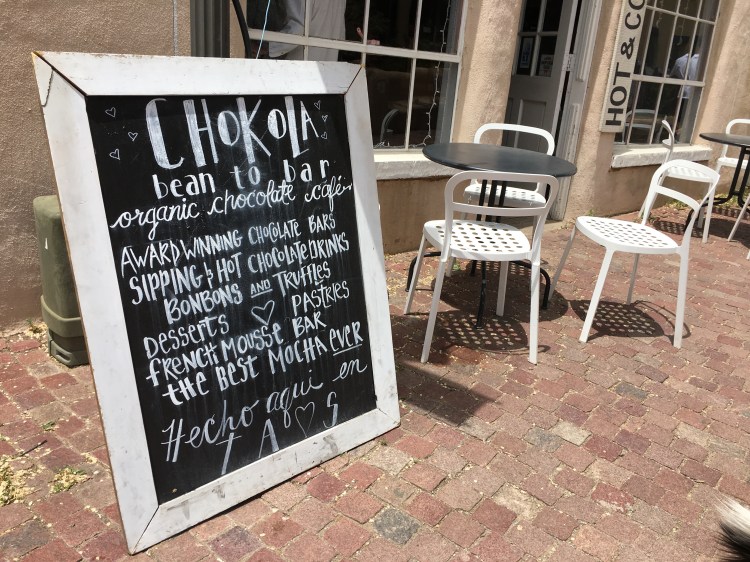 CHOKOLA
bean to bar
organic chocolate café
AWARD WINNING CHOCOLATE BARS
SIPPING & HOT CHOCOLATE DRINKS
BONBONS AND TRUFFLES
DESSERTS PASTRIES
FRENCH MOUSSE BAR
THE BEST MOCHA EVER
Hecho aqui en
TAOS
HOT & CO